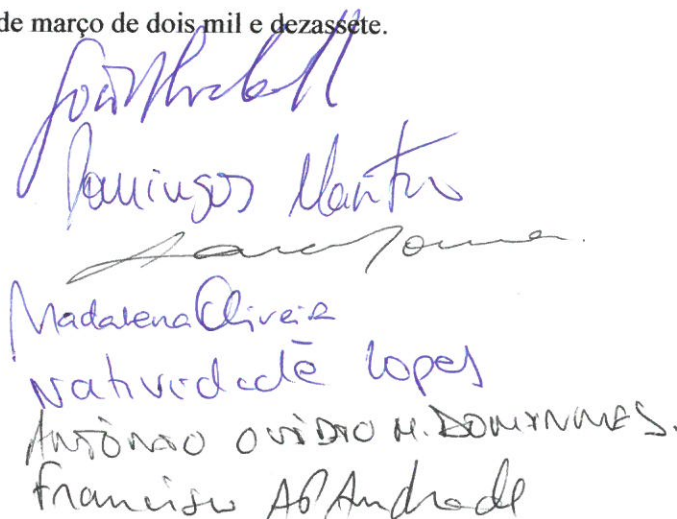 de março de dois mil e dezassete.
João
Domingos Martins
Madalena Oliveira
Natividade Lopes
ANTÓNIO OVÍDIO M. DOMINGUES.
Francisco Andrade